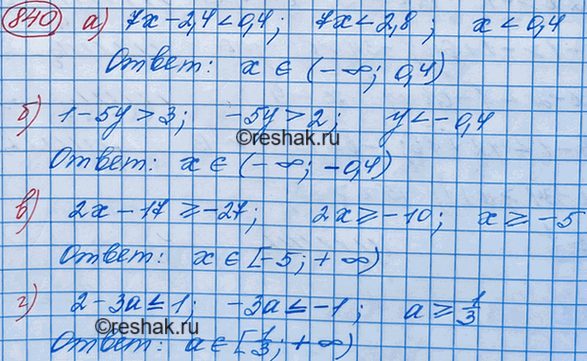 840 а) 7x-2,4<0,4; 7x<2,8; x<0,4
Ответ: x ∈ (-∞; 0,4)
б) 1-5y>3; -5y>2; y<-0,4
©reshak.ru
Ответ: x ∈ (-∞; -0,4)
в) 2x-17≥-27; 2x≥-10; x≥-5
Ответ: x ∈ [-5; +∞)
г) 2-3a≤1; -3a≤-1; a≥1/3
©reshak.ru
Ответ: a ∈ [1/3; +∞)